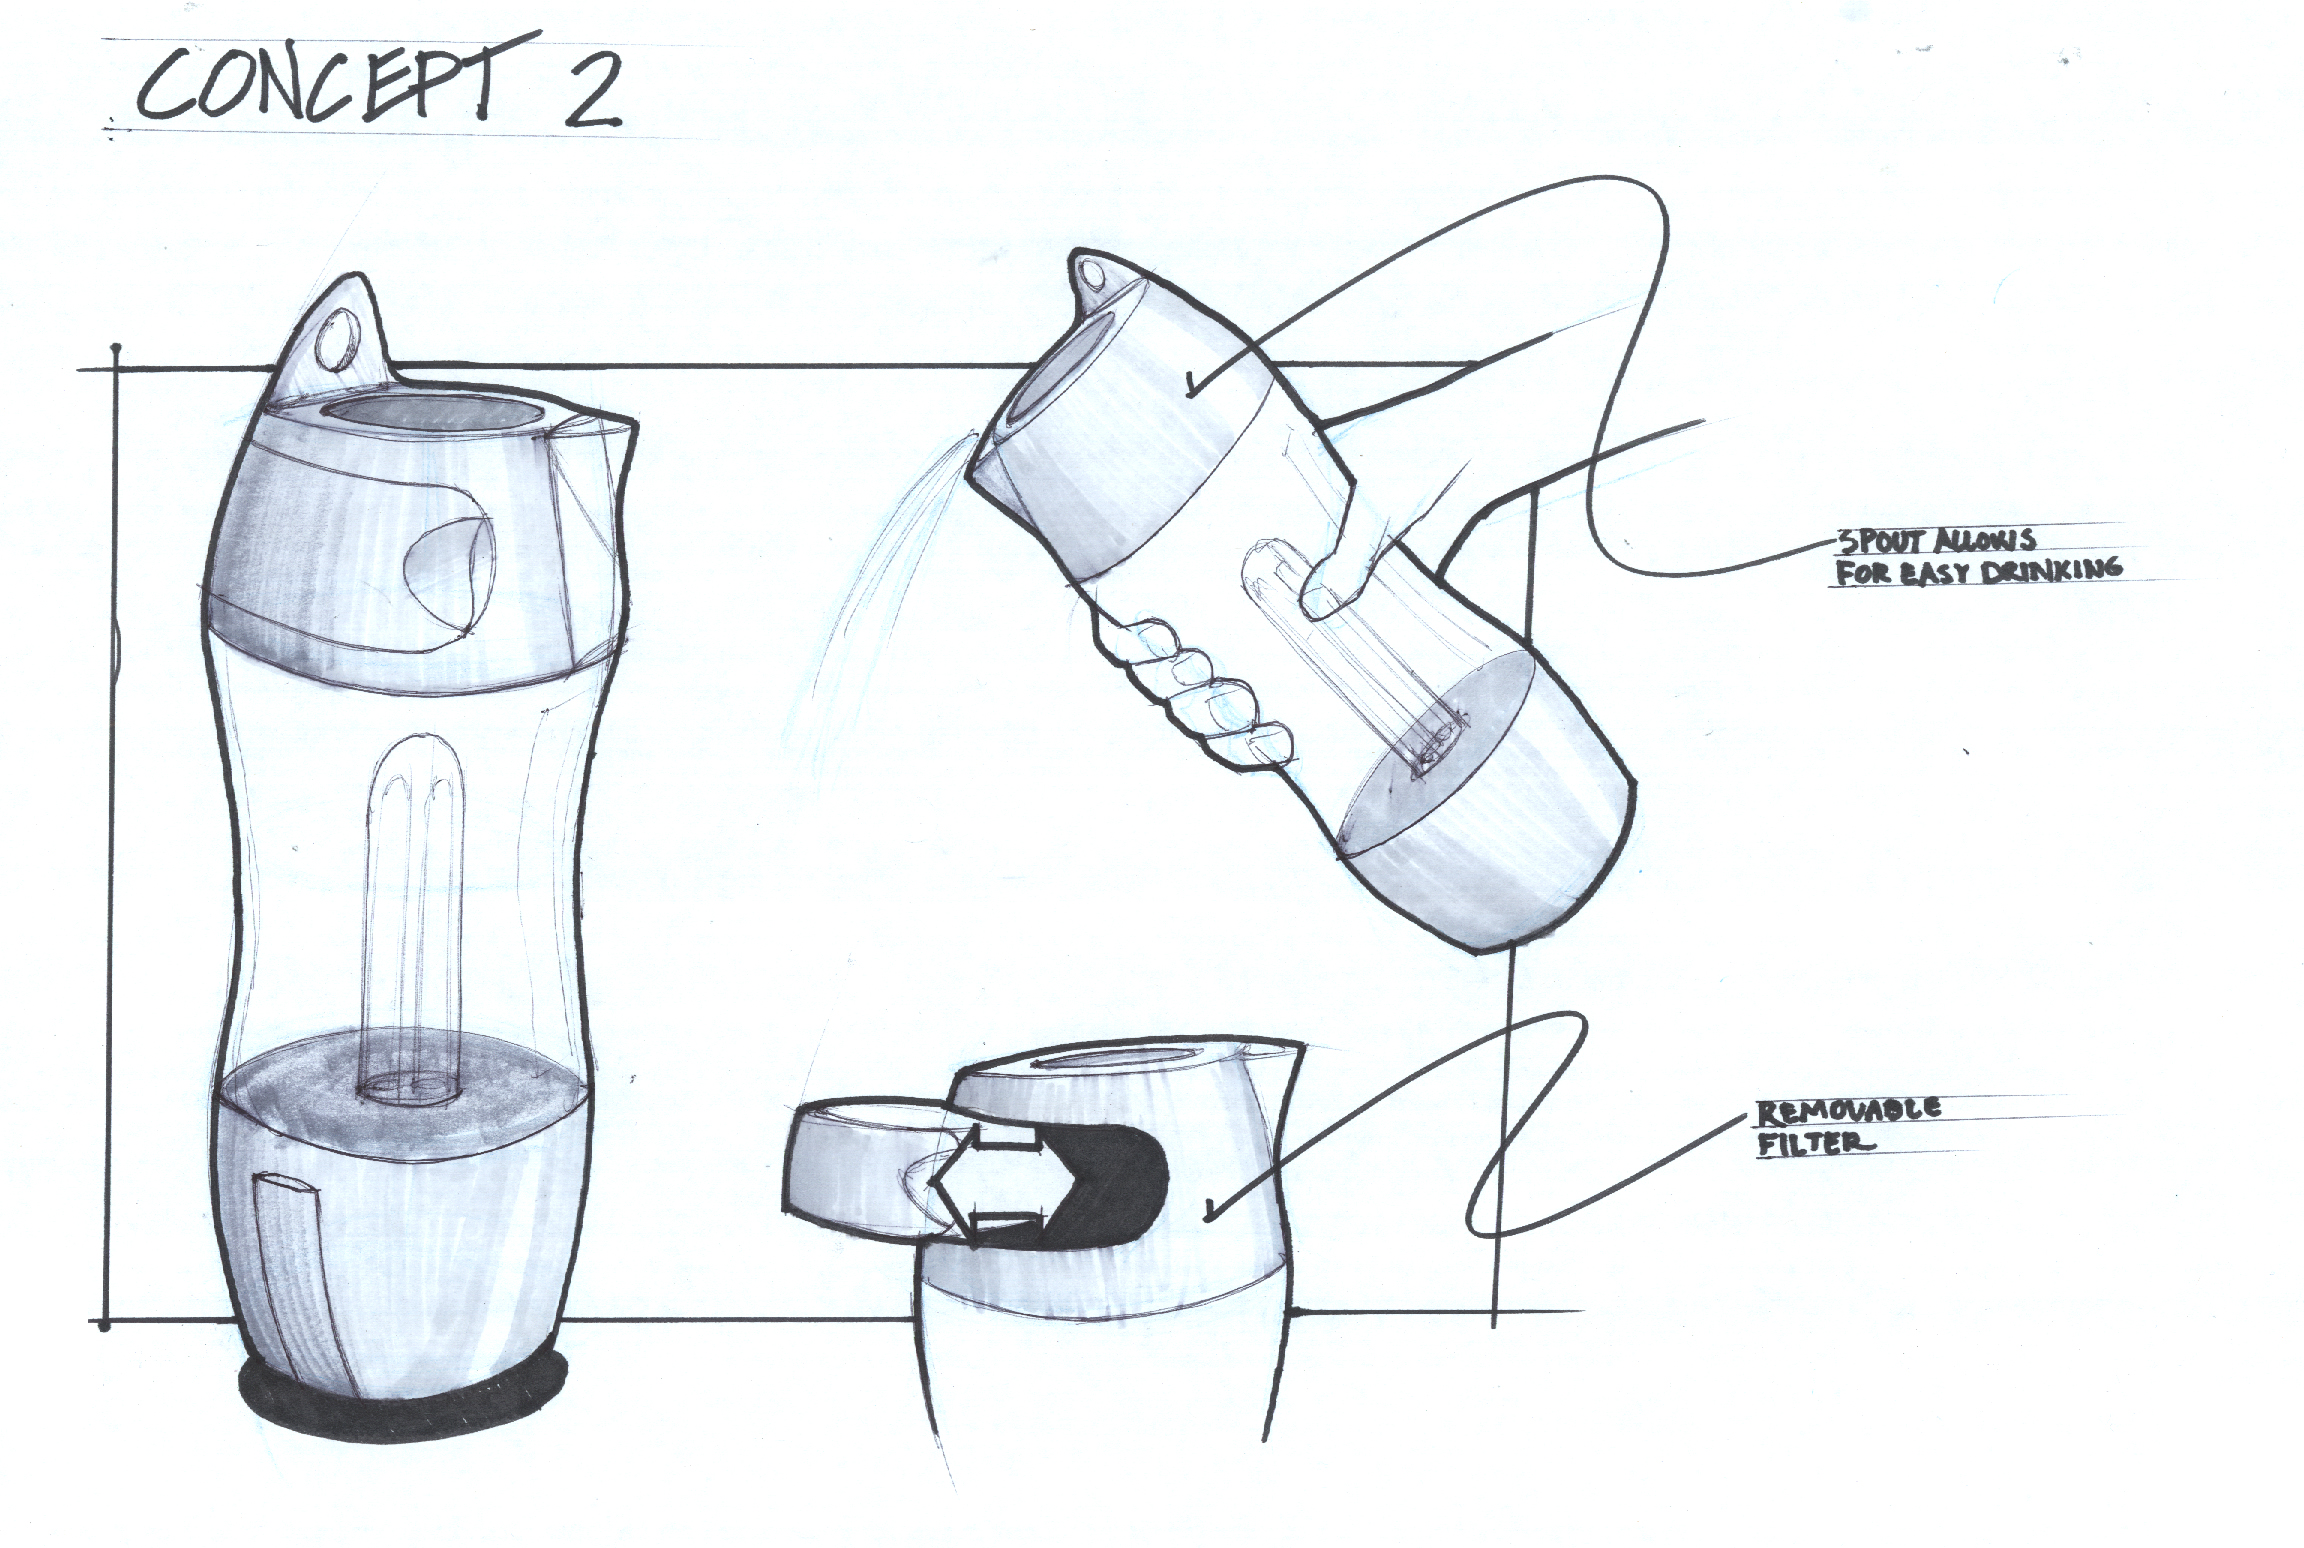 CONCEPT 2
SPOUT ALLOWS
FOR EASY DRINKING
REMOVABLE
FILTER